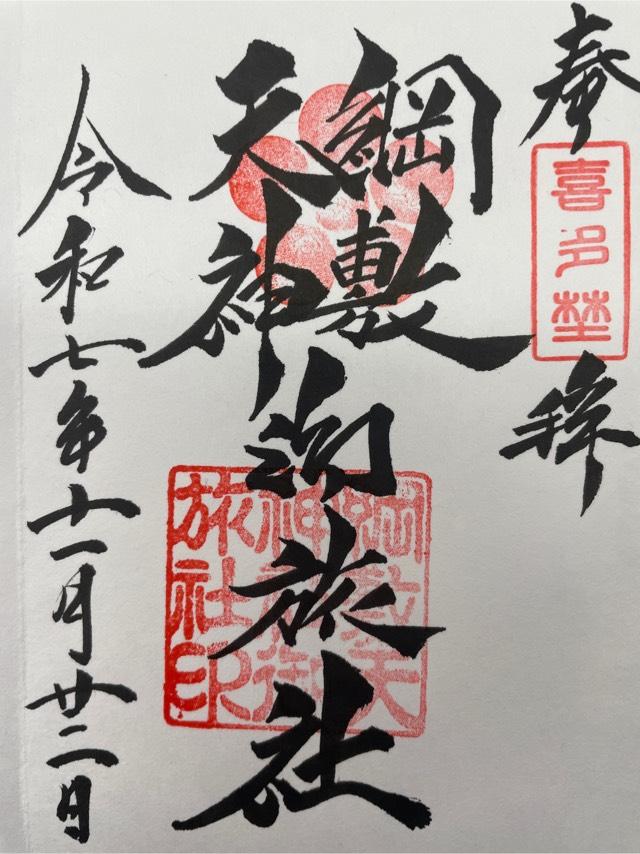 奉拝
喜多埜
綱敷
天神
御旅社
綱敷天
神社御
旅社印
令和七年十一月廿二日